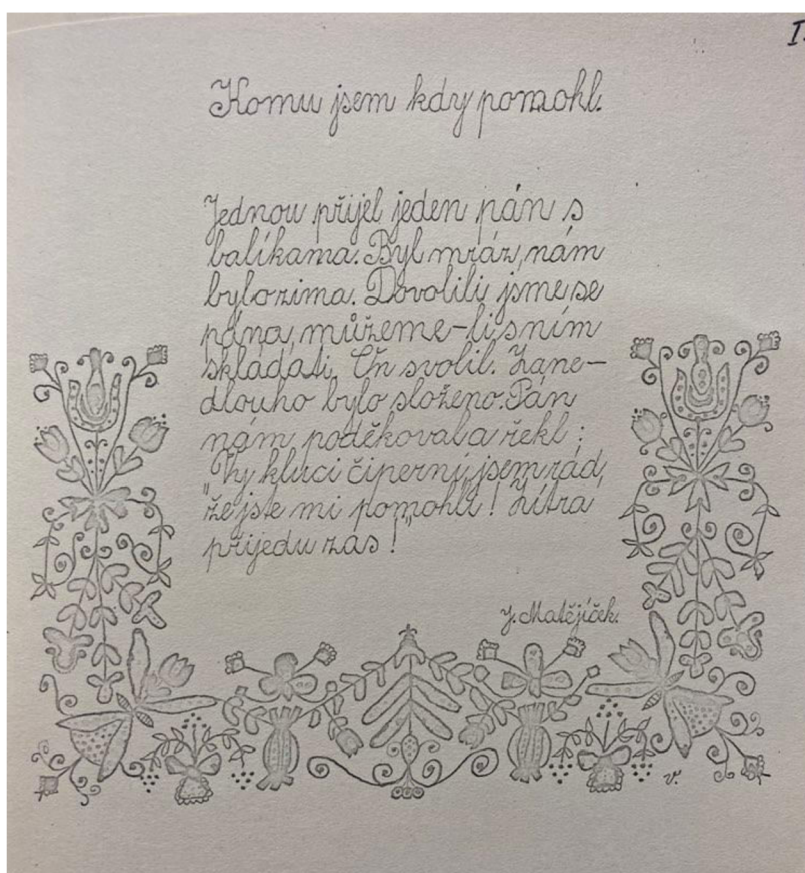 I.
Komu jsem kdy pomohl.
Jednou přijel jeden pán s
balíkama. Byl mráz, nám
bylo zima. Dovolili jsme se
pána, můžeme-li s ním
skládati. On svolil. Zane-
dlouho bylo složeno. Pán
nám poděkoval a řekl:
"Vy kluci čiperný, jsem rád,
že jste mi pomohli! Zítra
přijedu zas!"
J. Matějíček.
v.